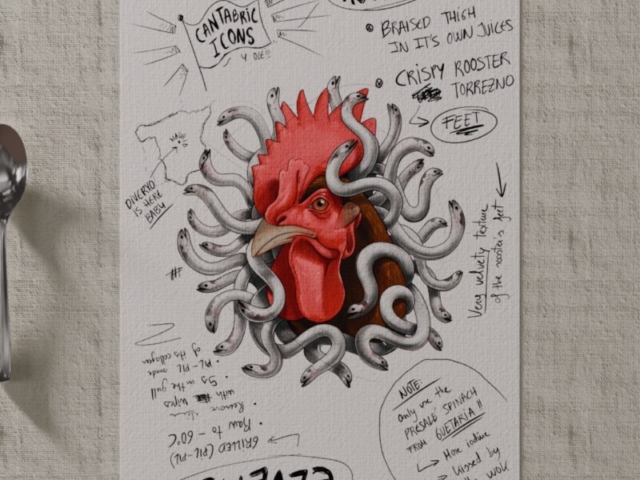 CANTABRIC
ICONS
Y OLE!!
BRAISED THIGH
IN IT'S OWN JUICES
CRISPY ROOSTER
TORREZNO
FEET
DIVERXO
IS HERE
BABY
Very velvety texture
of the rooster's feet
GRILLED (PIL-PIL)
Raw to - 60°C
Remove
with wipes
5s on the grill
PIL-PIL made
of its collagen
NOTE:
only use the
PRESALÉ SPINACH
FROM GUETARIA!!
More iodine
kissed by
wok